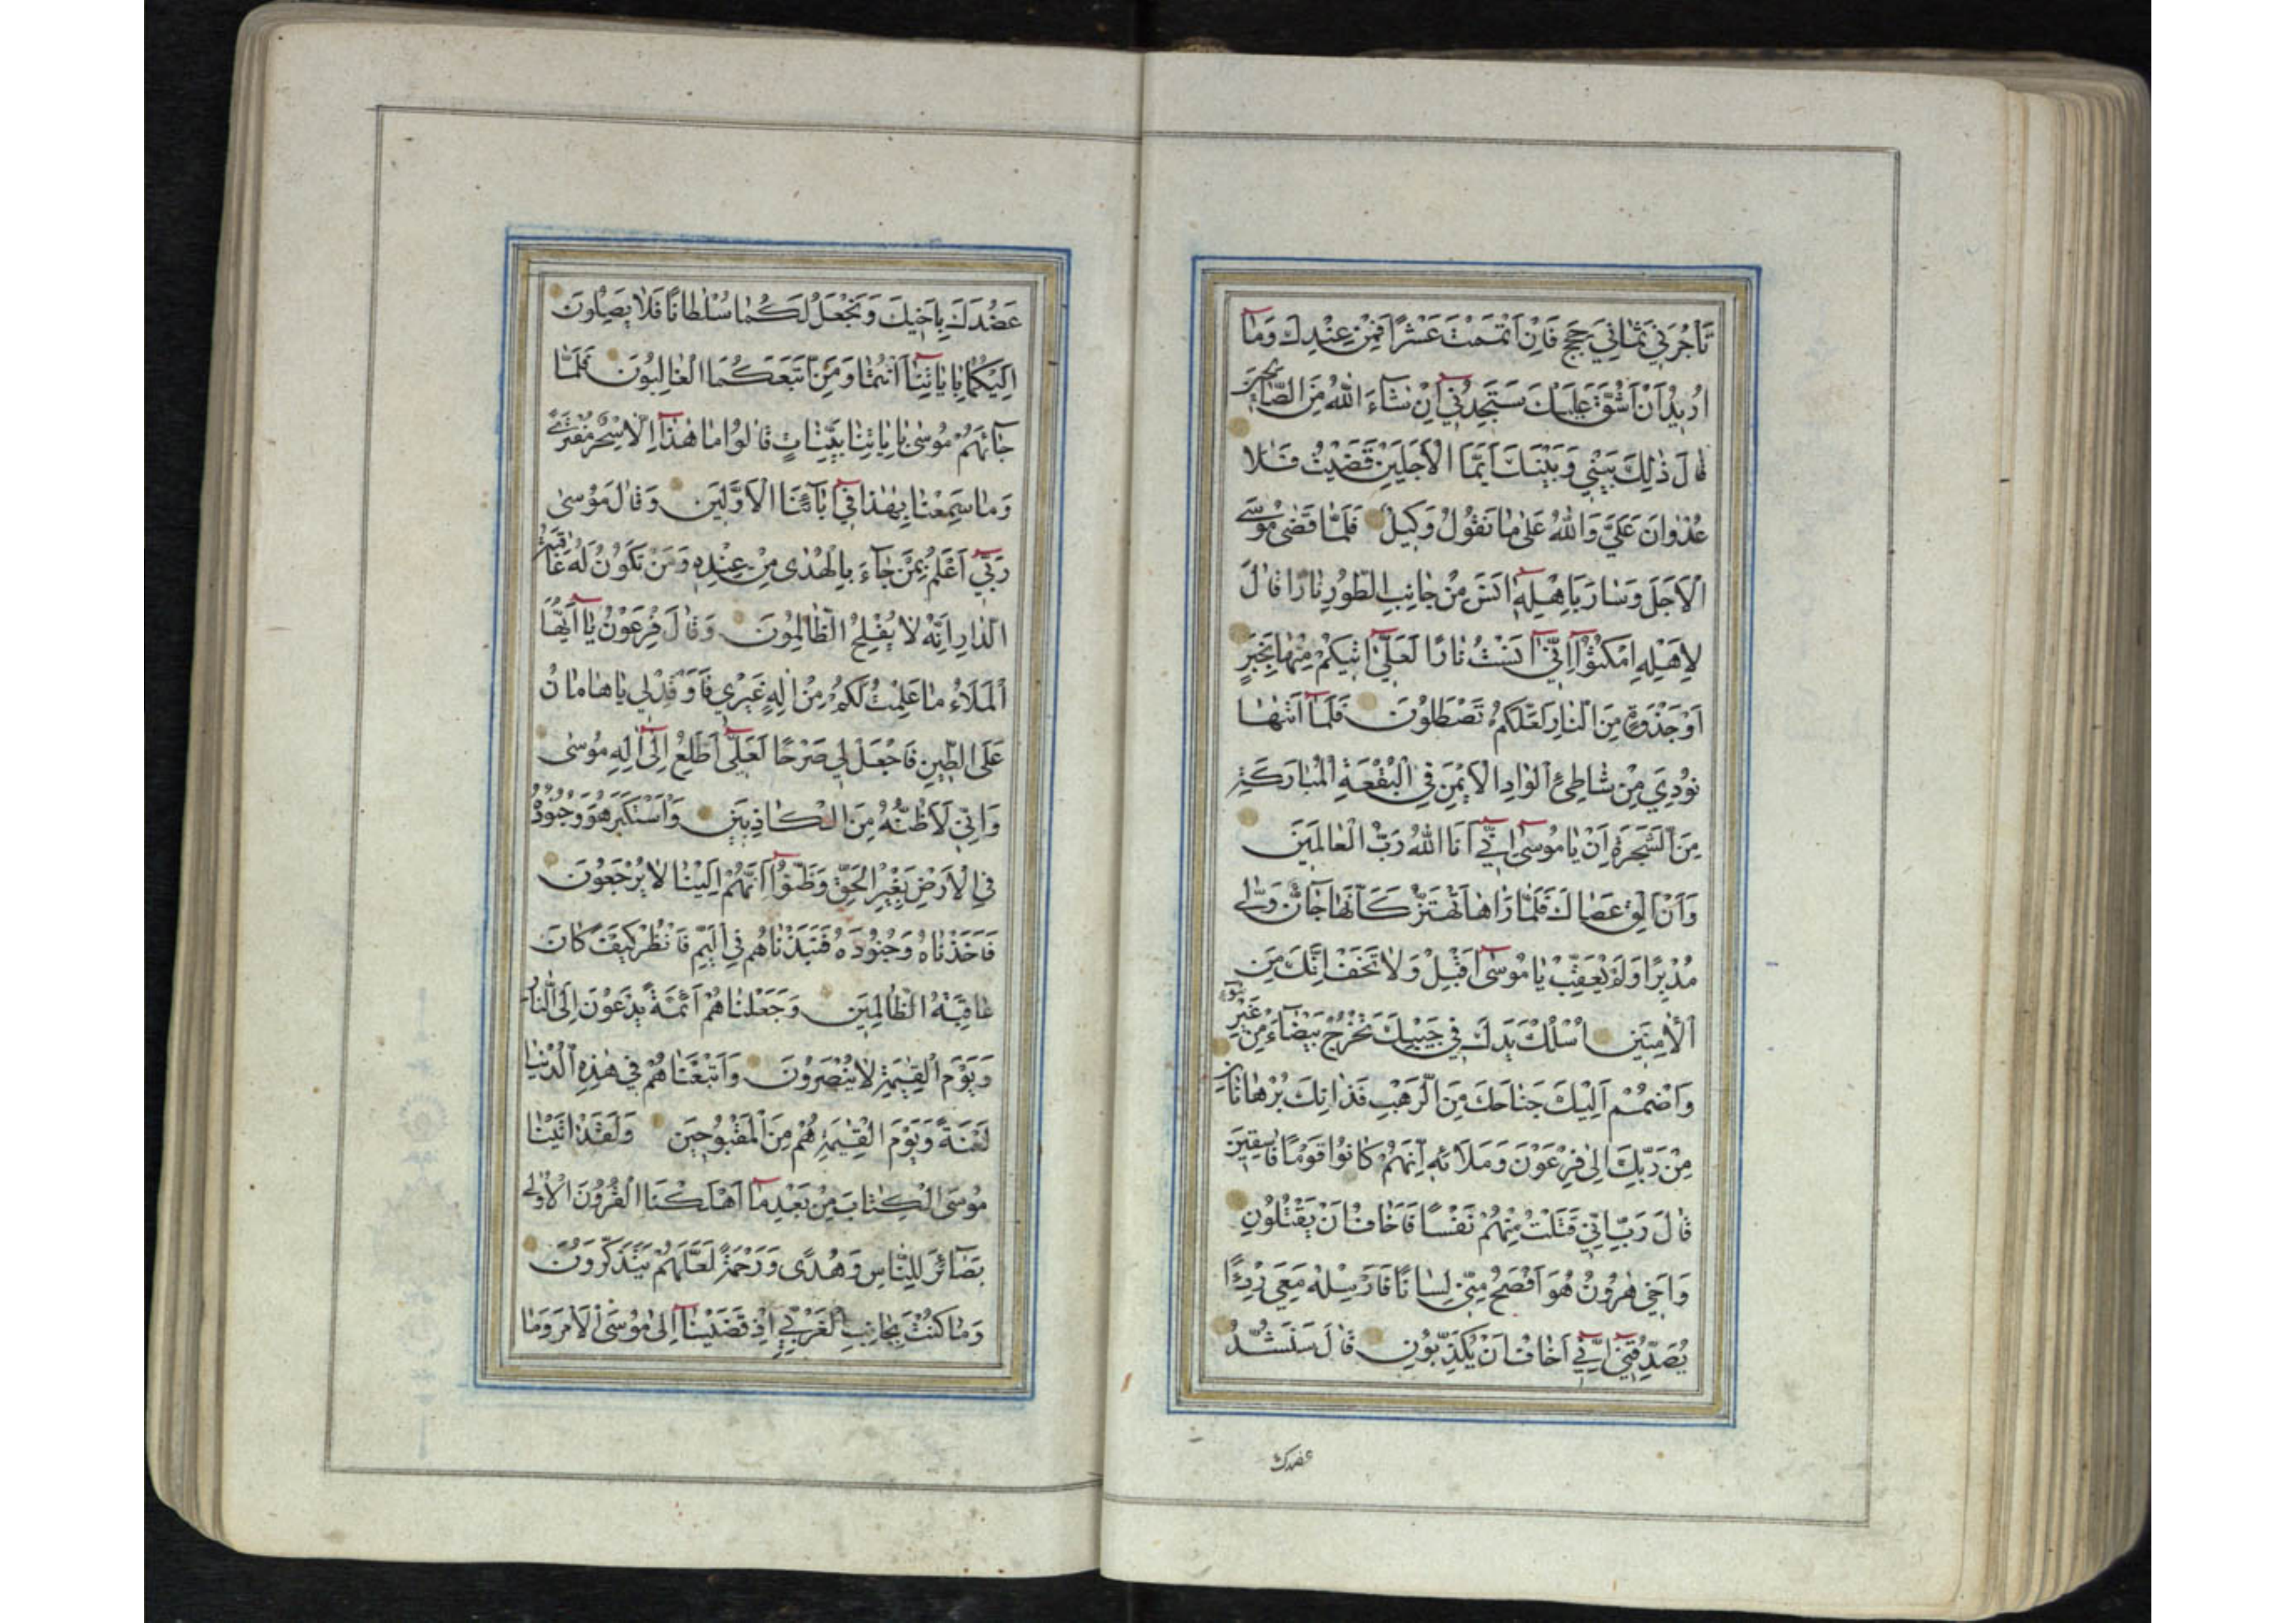 تَأْجُرَنِي ثَمَانِيَ حِجَجٍ فَاِنْ اَتْمَمْتَ عَشْرًا فَمِنْ عِنْدِكَ وَمَا
اُرِيدُ اَنْ اَشُقَّ عَلَيْكَ سَتَجِدُنِي اِنْ شَاءَ اللهُ مِنَ الصَّالِحِينَ
قَالَ ذٰلِكَ بَيْنِي وَبَيْنَكَ اَيَّمَا الْاَجَلَيْنِ قَضَيْتُ فَلَا
عُدْوَانَ عَلَيَّ وَاللهُ عَلٰى مَا نَقُولُ وَكِيلٌ فَلَمَّا قَضٰى مُوسَى
الْاَجَلَ وَسَارَ بِاَهْلِهِ اٰنَسَ مِنْ جَانِبِ الطُّورِ نَارًا قَالَ
لِاَهْلِهِ امْكُثُوا اِنِّي اٰنَسْتُ نَارًا لَعَلِّي اٰتِيكُمْ مِنْهَا بِخَبَرٍ
اَوْ جَذْوَةٍ مِنَ النَّارِ لَعَلَّكُمْ تَصْطَلُونَ فَلَمَّا اَتٰيهَا
نُودِيَ مِنْ شَاطِئِ الْوَادِ الْاَيْمَنِ فِي الْبُقْعَةِ الْمُبَارَكَةِ
مِنَ الشَّجَرَةِ اَنْ يَا مُوسٰى اِنِّي اَنَا اللهُ رَبُّ الْعَالَمِينَ
وَاَنْ اَلْقِ عَصَاكَ فَلَمَّا رَاٰهَا تَهْتَزُّ كَاَنَّهَا جَانٌّ وَلّٰى
مُدْبِرًا وَلَمْ يُعَقِّبْ يَا مُوسٰى اَقْبِلْ وَلَا تَخَفْ اِنَّكَ مِنَ
الْاٰمِنِينَ اُسْلُكْ يَدَكَ فِي جَيْبِكَ تَخْرُجْ بَيْضَاءَ مِنْ غَيْرِ سُوءٍ
وَاضْمُمْ اِلَيْكَ جَنَاحَكَ مِنَ الرَّهْبِ فَذَانِكَ بُرْهَانَانِ
مِنْ رَبِّكَ اِلٰى فِرْعَوْنَ وَمَلَائِهِ اِنَّهُمْ كَانُوا قَوْمًا فَاسِقِينَ
قَالَ رَبِّ اِنِّي قَتَلْتُ مِنْهُمْ نَفْسًا فَاَخَافُ اَنْ يَقْتُلُونِ
وَاَخِي هٰرُونُ هُوَ اَفْصَحُ مِنِّي لِسَانًا فَاَرْسِلْهُ مَعِيَ رِدْءًا
يُصَدِّقُنِي اِنِّي اَخَافُ اَنْ يُكَذِّبُونِ قَالَ سَنَشُدُّ
عضدك
عَضُدَكَ بِاَخِيكَ وَنَجْعَلُ لَكُمَا سُلْطَانًا فَلَا يَصِلُونَ
اِلَيْكُمَا بِاٰيَاتِنَا اَنْتُمَا وَمَنِ اتَّبَعَكُمَا الْغَالِبُونَ فَلَمَّا
جَاءَهُمْ مُوسٰى بِاٰيَاتِنَا بَيِّنَاتٍ قَالُوا مَا هٰذَا اِلَّا سِحْرٌ مُفْتَرًى
وَمَا سَمِعْنَا بِهٰذَا فِي اٰبَائِنَا الْاَوَّلِينَ وَقَالَ مُوسٰى
رَبِّي اَعْلَمُ بِمَنْ جَاءَ بِالْهُدٰى مِنْ عِنْدِهِ وَمَنْ تَكُونُ لَهُ عَاقِبَةُ
الدَّارِ اِنَّهُ لَا يُفْلِحُ الظَّالِمُونَ وَقَالَ فِرْعَوْنُ يَا اَيُّهَا
الْمَلَاُ مَا عَلِمْتُ لَكُمْ مِنْ اِلٰهٍ غَيْرِي فَاَوْقِدْ لِي يَا هَامَانُ
عَلَى الطِّينِ فَاجْعَلْ لِي صَرْحًا لَعَلِّي اَطَّلِعُ اِلٰى اِلٰهِ مُوسٰى
وَاِنِّي لَاَظُنُّهُ مِنَ الْكَاذِبِينَ وَاسْتَكْبَرَ هُوَ وَجُنُودُهُ
فِي الْاَرْضِ بِغَيْرِ الْحَقِّ وَظَنُّوا اَنَّهُمْ اِلَيْنَا لَا يُرْجَعُونَ
فَاَخَذْنَاهُ وَجُنُودَهُ فَنَبَذْنَاهُمْ فِي الْيَمِّ فَانْظُرْ كَيْفَ كَانَ
عَاقِبَةُ الظَّالِمِينَ وَجَعَلْنَاهُمْ اَئِمَّةً يَدْعُونَ اِلَى النَّارِ
وَيَوْمَ الْقِيٰمَةِ لَا يُنْصَرُونَ وَاَتْبَعْنَاهُمْ فِي هٰذِهِ الدُّنْيَا
لَعْنَةً وَيَوْمَ الْقِيٰمَةِ هُمْ مِنَ الْمَقْبُوحِينَ وَلَقَدْ اٰتَيْنَا
مُوسَى الْكِتَابَ مِنْ بَعْدِ مَا اَهْلَكْنَا الْقُرُونَ الْاُولٰى
بَصَائِرَ لِلنَّاسِ وَهُدًى وَرَحْمَةً لَعَلَّهُمْ يَتَذَكَّرُونَ
وَمَا كُنْتَ بِجَانِبِ الْغَرْبِيِّ اِذْ قَضَيْنَا اِلٰى مُوسَى الْاَمْرَ وَمَا